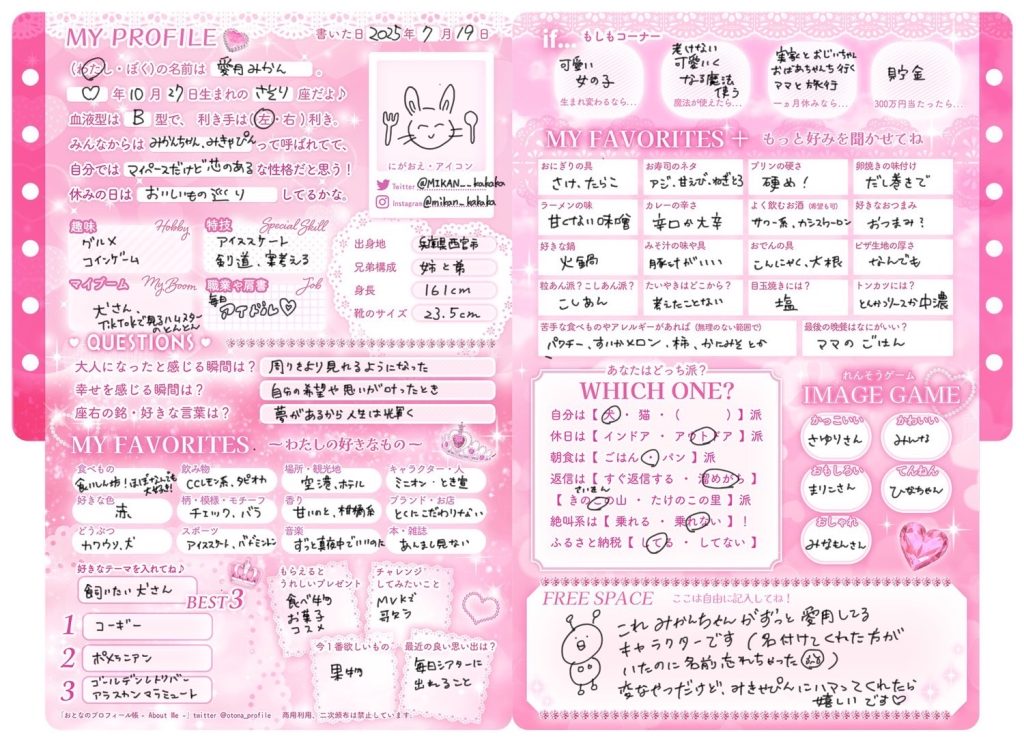 MY PROFILE
書いた日 2025年 7月 19日
(わたし・ぼく)の名前は 愛月みかん 。
♡ 年 10月 27日生まれの さそり 座だよ♪
血液型は B 型で、利き手は(左・右)利き。
みんなからは みかんちゃん、みきゃぴん って呼ばれてて、
自分では マイペースだけど芯のある な性格だと思う!
休みの日は おいしいもの巡り してるかな。
にがおえ・アイコン
Twitter @MIKAN__kakaka
Instagram @mikan__kakaka
趣味 Hobby
グルメ
コインゲーム
特技 Special Skill
アイススケート
剣道、楽考える
マイブーム My Boom
犬さん、
TikTokで見るハムスター
のとんとん
職業や肩書 Job
毎日
アイドル♡
出身地 兵庫県西宮市
兄弟構成 姉と弟
身長 161cm
靴のサイズ 23.5cm
QUESTIONS
大人になったと感じる瞬間は? 周りをより見れるようになった
幸せを感じる瞬間は? 自分の希望や思いが叶ったとき
座右の銘・好きな言葉は? 夢があるから人生は輝く
MY FAVORITES. ～わたしの好きなもの～
食べもの
食いしん坊!ほぼなんでも
大好き!
飲み物
CCレモン系、タピオカ
場所・観光地
空港、ホテル
キャラクター・人
ミニオン・とき宣
好きな色
赤
柄・模様・モチーフ
チェック、バラ
香り
甘いのと、柑橘系
ブランド・お店
とくにこだわりない
どうぶつ
カワウソ、犬
スポーツ
アイススケート、バドミントン
音楽
ずっと真夜中でいいのに
本・雑誌
あんまし見ない
好きなテーマを入れてね♪
飼いたい犬さん
BEST3
1 コーギー
2 ポメラニアン
3 ゴールデンレトリバー
アラスカンマラミュート
もらえると
うれしいプレゼント
食べ物
お菓子
コスメ
チャレンジ
してみたいこと
MVKで
歌うう
今1番欲しいもの
果物
最近の良い思い出は?
毎日シアターに
出れること
「おとなのプロフィール帳 - About Me -」twitter @otona_profile 商用利用、二次頒布は禁止しています。
if... もしもコーナー
可愛い
女の子
生まれ変わるなら...
老けない
可愛いく
なる魔法
使う
魔法が使えたら...
実家とおじいちゃん
おばあちゃんち行く
ママと旅行
一ヵ月休みなら...
貯金
300万円当たったら...
MY FAVORITES + もっと好みを聞かせてね
おにぎりの具
さけ、たらこ
お寿司のネタ
アジ、甘えび、ねぎとろ
プリンの硬さ
硬め!
卵焼きの味付け
だし巻きで
ラーメンの味
甘くない味噌
カレーの辛さ
辛口か大辛
よく飲むお酒(希望も可)
サワー系、カシスウーロン
好きなおつまみ
おつまみ?
好きな鍋
火鍋
みそ汁の味や具
豚汁がいい
おでんの具
こんにゃく、大根
ピザ生地の厚さ
なんでも
粒あん派?こしあん派?
こしあん
たいやきはどこから?
考えたことない
目玉焼きには?
塩
トンカツには?
とんかつソースか中濃
苦手な食べものやアレルギーがあれば(無理のない範囲で)
パクチー、すいかメロン、柿、かにみそとか
最後の晩餐はなにがいい?
ママのごはん
あなたはどっち派?
WHICH ONE?
自分は【 犬 ・ 猫 ・ ( ) 】派
休日は【 インドア ・ アウトドア 】派
朝食は【 ごはん ・ パン 】派
返信は【 すぐ返信する ・ 溜めがち 】派
さいきん
【 きのこの山 ・ たけのこの里 】派
絶叫系は【 乗れる ・ 乗れない 】!
ふるさと納税【 してる ・ してない 】
れんそうゲーム
IMAGE GAME
かっこいい
さゆりさん
かわいい
みいける
おもしろい
まりこさん
てんねん
ひなちゃん
おしゃれ
みなもんさん
FREE SPACE ここは自由に記入してね!
これ みかんちゃんがずっと愛用してる
キャラクターです(名付けてくれた方が
いたのに名前忘れちゃった)
変なやつだけど、みきゃぴんにハマってくれたら
嬉しいです♡